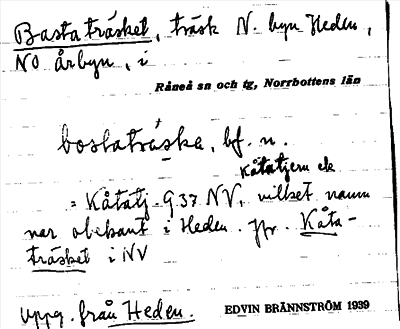 Bastaträsket, träsk N. byn Heden,
NO Årbyn, i
Råneå sn och tg, Norrbottens län
bostaträske, bf. n.
Kåtatjern ek
= Kåtatj. 9.37 NV, vilket namn
var obekant i Heden. Jfr. Kåta-
träsket i NV
Uppg. från Heden.
EDVIN BRÄNNSTRÖM 1939